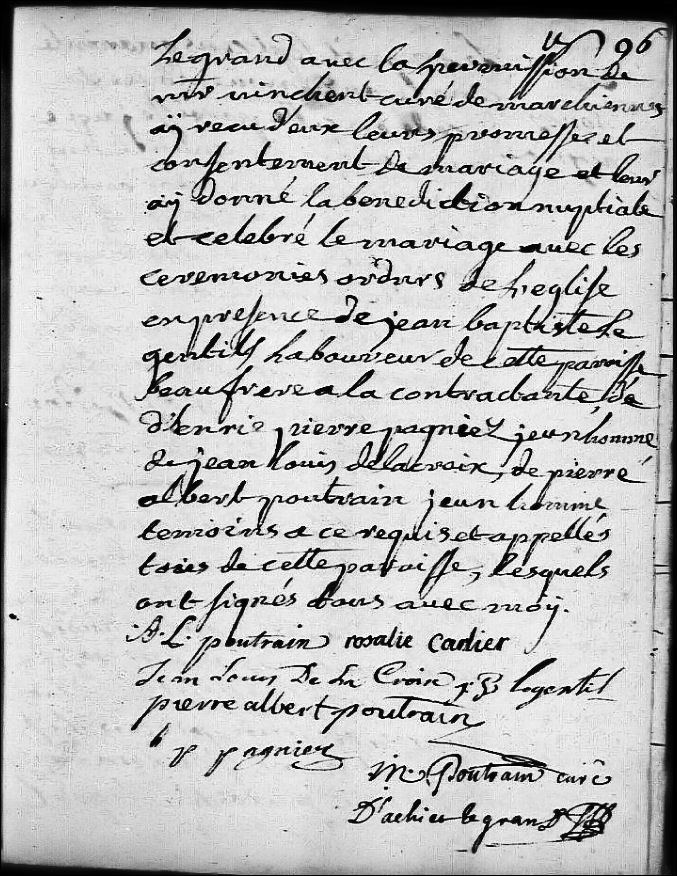 96
Legrand avec la permission de
mr vinchent curé de marchiennes
aÿ recu deux leurs promesses et
consentement de mariage et leur
aÿ donné la benediction nuptiale
et celebré le mariage avec les
ceremonies ordrs de l'eglise
en presence de jean baptiste le
gentils laboureur de cette paroisse
beaufrere a la contractante, de
d'henrie pierre pagniez jeun homme
de jean louis delacroix, de pierre
albert poutrain jeun homme
temoins a ce requis et appellés
tous de cette paroisse, lesquels
ont signés tous avec moÿ.
A. L. poutrain rosalie carlier
Jean Louis De La Croix j: B legentil
pierre albert poutrain
h p pagniez
m. Poutrain curé
D'achier legrand